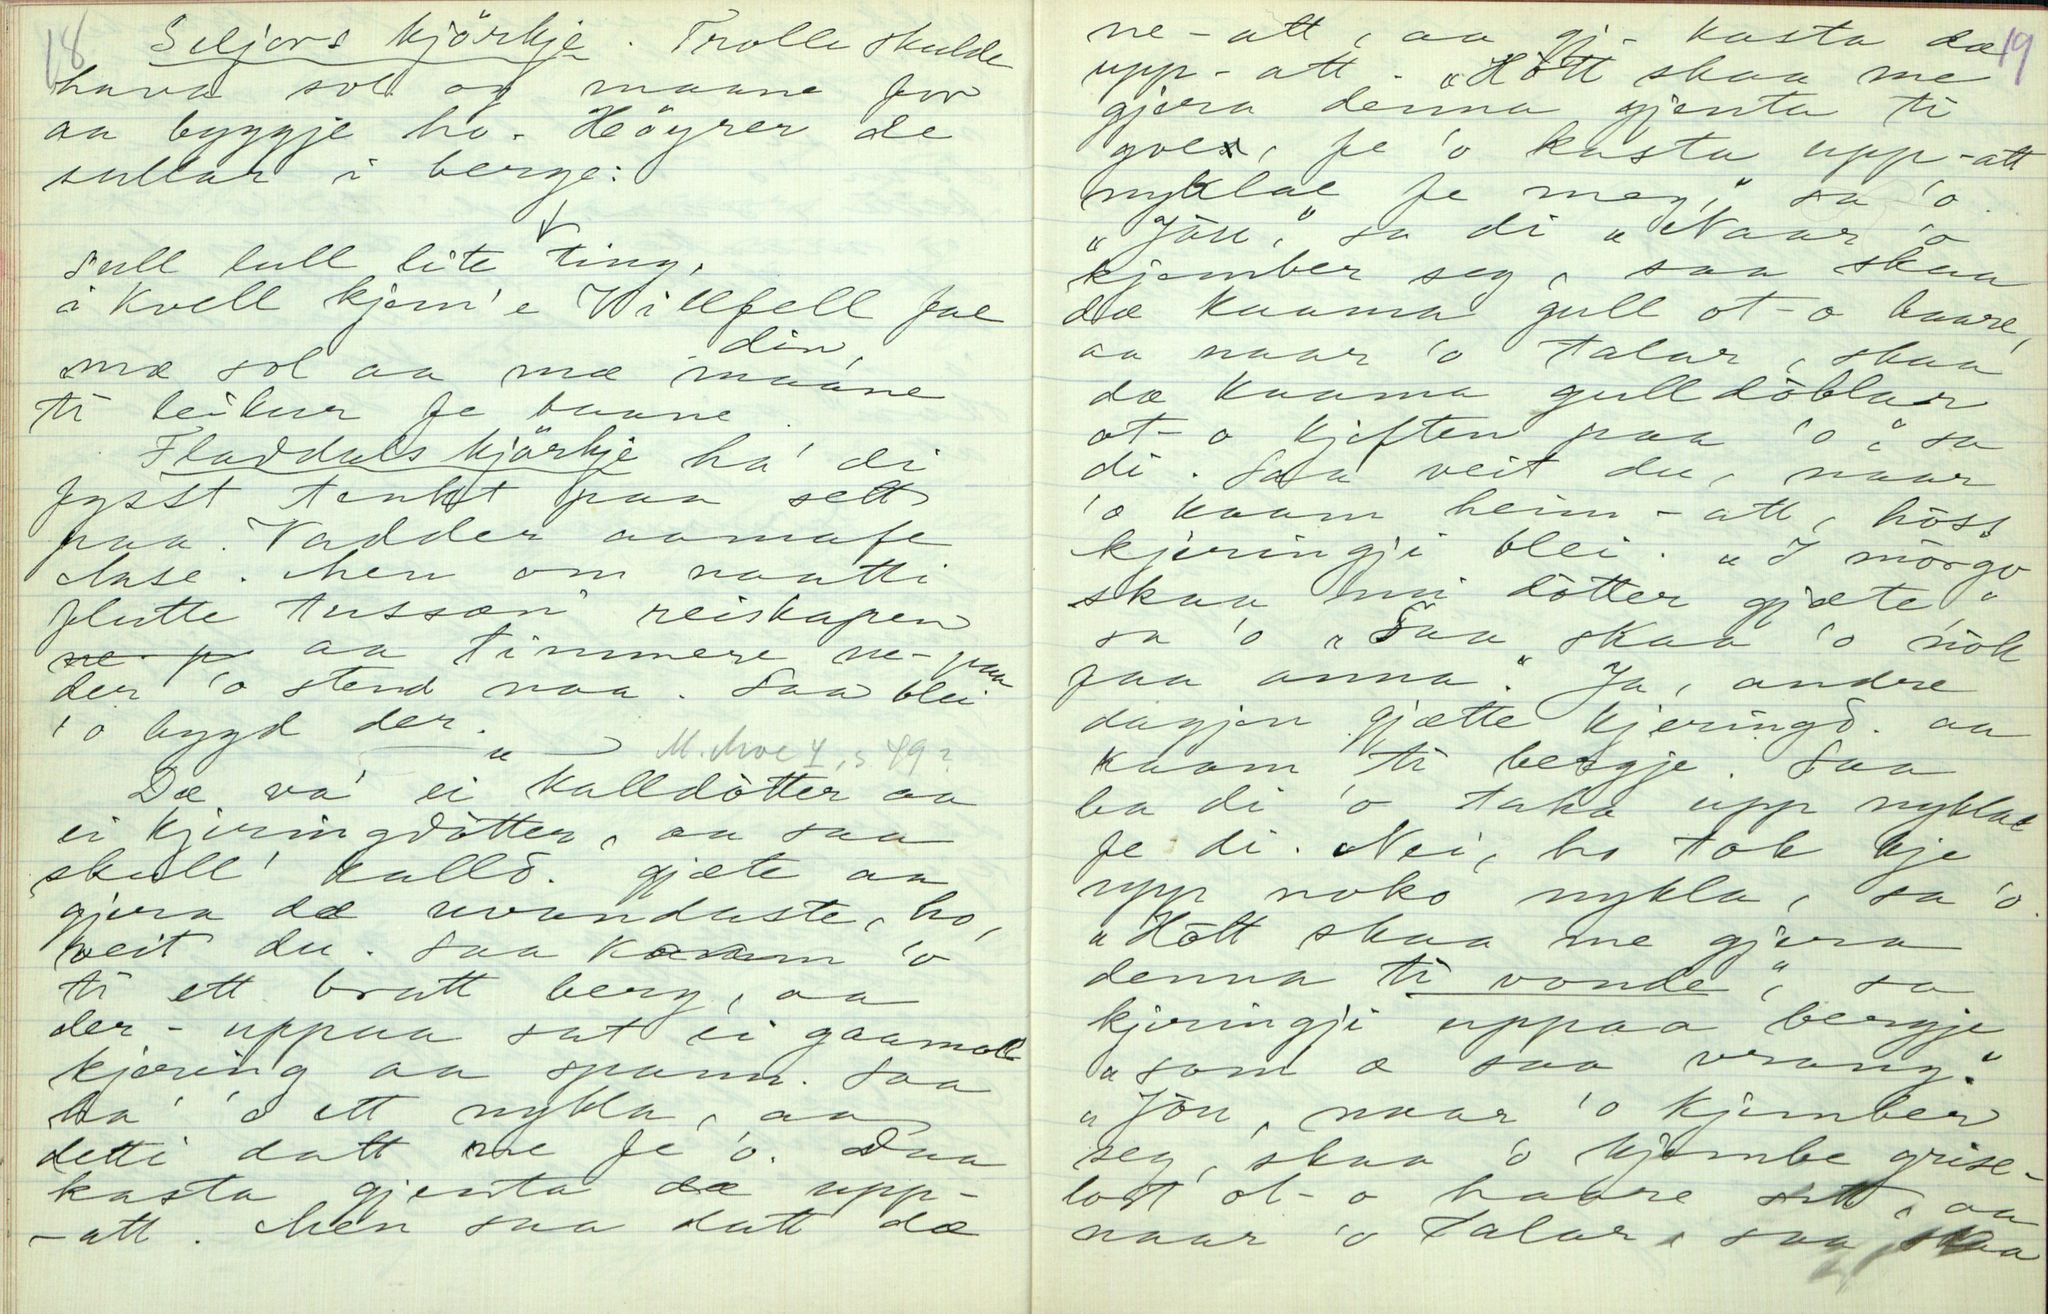 18
Seljors kjörkje. Trolle skulde
hava sol og maane for
aa byggje ho. Höyrer de
sullar i berge:
Sull lull lite ting,
i kvell kjem'e Villfell fae
din,
mæ sol aa mæ maane
ti leikur fe baane.
Fladdals kjörkje ha' di
fysst tenkt paa sett
paa Vadder aamafe
Aase. Men om naatti
flutte tussan reiskapen
ne på aa timmere ne-paa
der 'o stend naa. Saa blei
'o bygd der.
— " — M. Moe I, s 49?
Dæ va' ei kalldòtter aa
ei kjeringdòtter, aa saa
skull' kalld. gjæte aa
gjera dæ uvandaste, ho,
veit du. Saa kaam 'o
ti ett bratt berg, aa
der-uppaa sat ei gaamal
kjæring aa spann. Saa
ha' 'o ett nykla, aa
detti datt ne fe 'o. Daa
kasta gjenta dæ upp-
-att. Men saa datt dæ
19
ne-att, aa gj. kasta dæ
upp-att. "Hòtt skaa me
gjera denna gjenta ti
goe, fe 'o kasta upp-att
nyklae fe meg," sa 'o.
"Jòu," sa di "Naar 'o
kjember seg, saa skaa
dæ kaama gull ot-o haare,
aa naar 'o talar, skaa
dæ kaama gulldòblar
ot-o kjeften paa 'o," sa
di. Saa veit du, naar
'o kaam heim-att, hòss
kjeringji blei. "I mòrgo
skaa mi dòtter gjæte"
sa 'o "Saa skaa 'o nòk
faa anna." Ja, andre
dagjen gjætte kjeringd. aa
kaam ti bergje. Saa
ba di 'o taka upp nyklae
fe di. Nei, ho tok kje
upp noko nykla, sa 'o.
"Hòtt skaa me gjera
denna ti vonde", sa
kjeringji uppaa bergje
"som æ saa vrang."
"Jòu, naar 'o kjember
seg, skaa 'o kjembe grise-
lort ot-o haare sitt, aa
naar 'o talar, saa skaa